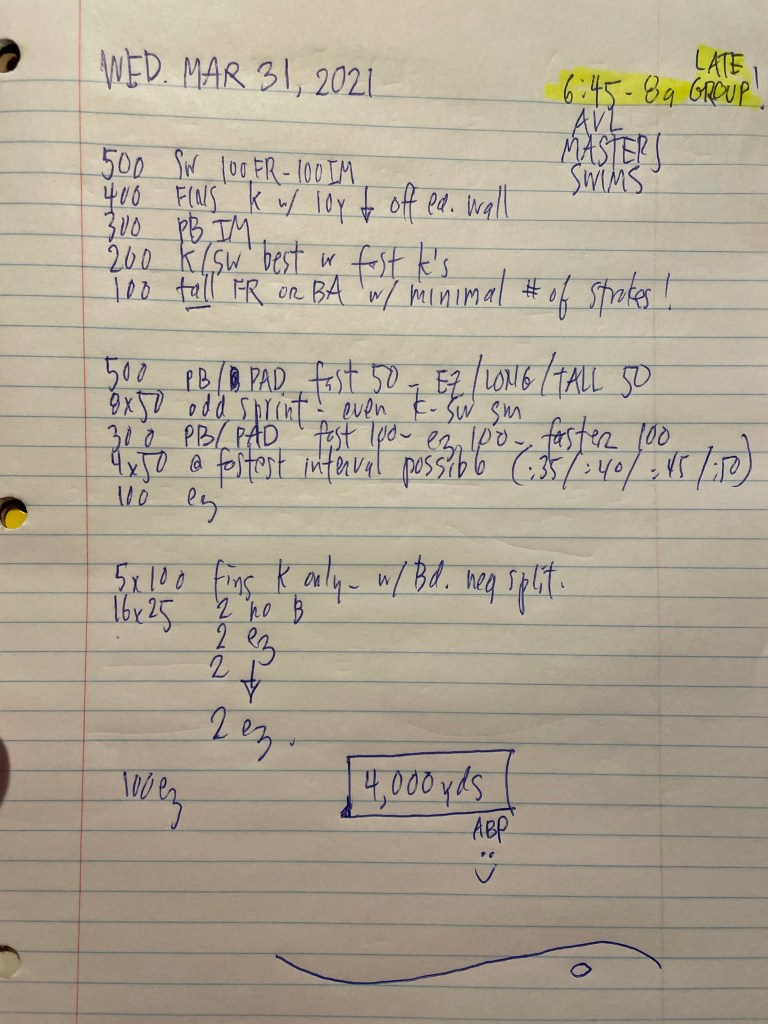 WED. MAR 31, 2021
LATE
6:45 - 8a GROUP!
AVL
MASTERS
SWIMS
500 SW 100FR-100IM
400 FINS K w/ 10y ↓ off ea. wall
300 PB IM
200 K/SW best w fast k's
100 tall FR or BA w/ minimal # of strokes!
500 PB/PAD fast 50 - EZ/LONG/TALL 50
8x50 odd sprint - even K-SW sm
300 PB/PAD fast 100- ez 100- faster 100
4x50 @ fastest interval possible (:35/:40/:45/:50)
100 ez
5x100 Fins K only - w/ Bd. neg split.
16x25 2 no B
2 ez
2 ↓
2 ez.
100 ez
4,000 yds
ABP